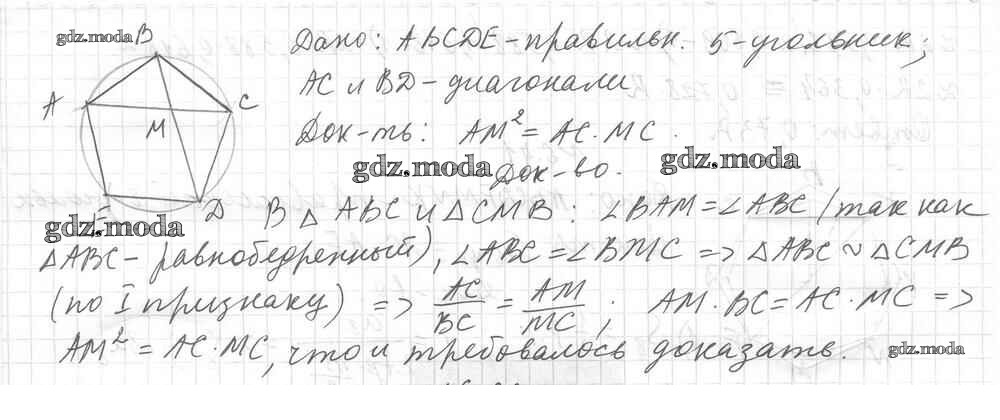 gdz.moda B
Дано: ABCDE-правильн. 5-угольник;
A C
AC и BD-диагонали
M
Док-ть: AM² = AC·MC.
gdz.moda gdz.moda
Док-во.
E D
gdz.moda
В △ABC и △CMB: ∠BAM=∠ABC (так как
△ABC- равнобедренный), ∠ABC=∠BMC => △ABC ~ △CMB
(по I признаку) => AC/BC = AM/MC; AM·BC=AC·MC =>
AM² = AC·MC, что и требовалось доказать.
gdz.moda